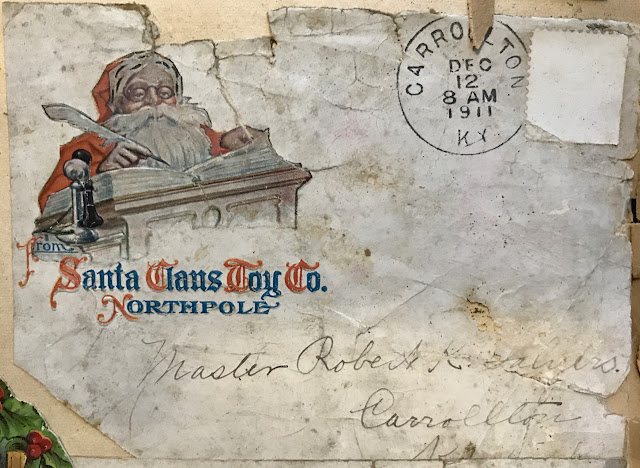 CARROLLTON
DEC
12
8 AM
1911
KY
From
Santa Claus Toy Co.
NORTHPOLE
Master Robert K.
Carrollton